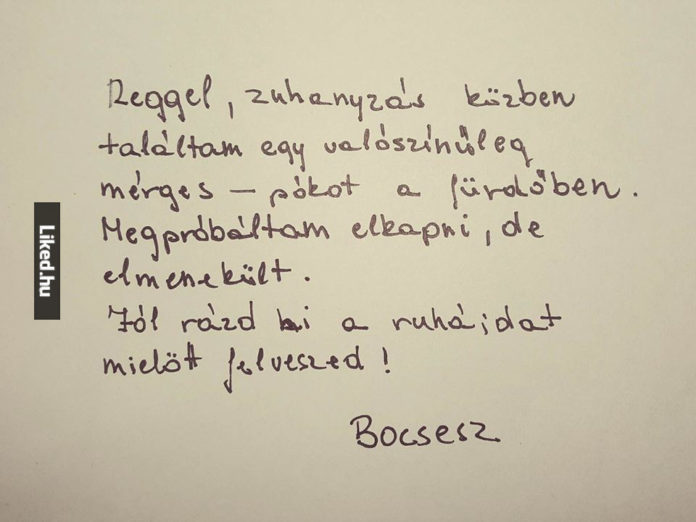 Reggel, zuhanyzás közben
találtam egy valószínűleg
mérges – pókot a fürdőben.
Megpróbáltam elkapni, de
elmenekült.
Jól rázd ki a ruháidat
mielőtt felveszed!
Bocsesz
Liked.hu